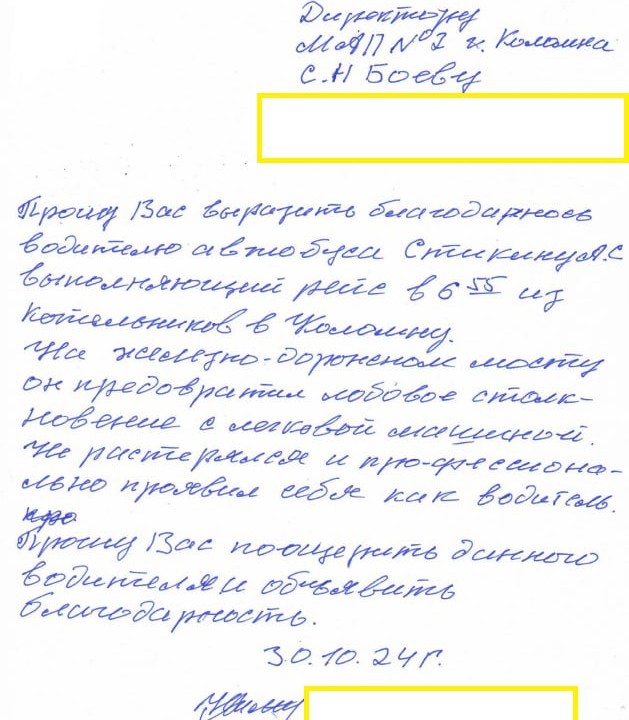 Директору
МАП №2 г. Коломна
С.Н Боеву
Прошу Вас выразить благодарнось
водителю автобуса Стикину А.С
выполняющий рейс в 6 55 из
Котельников в Коломну.
На железно-дорожном мосту
он предовратил лобовое столк-
новение с легковой машиной.
Не растерялся и профессиона-
льно проявил себя как водитель.
Прошу Вас поощерить данного
водителя и объявить
благодарность.
30.10.24г.